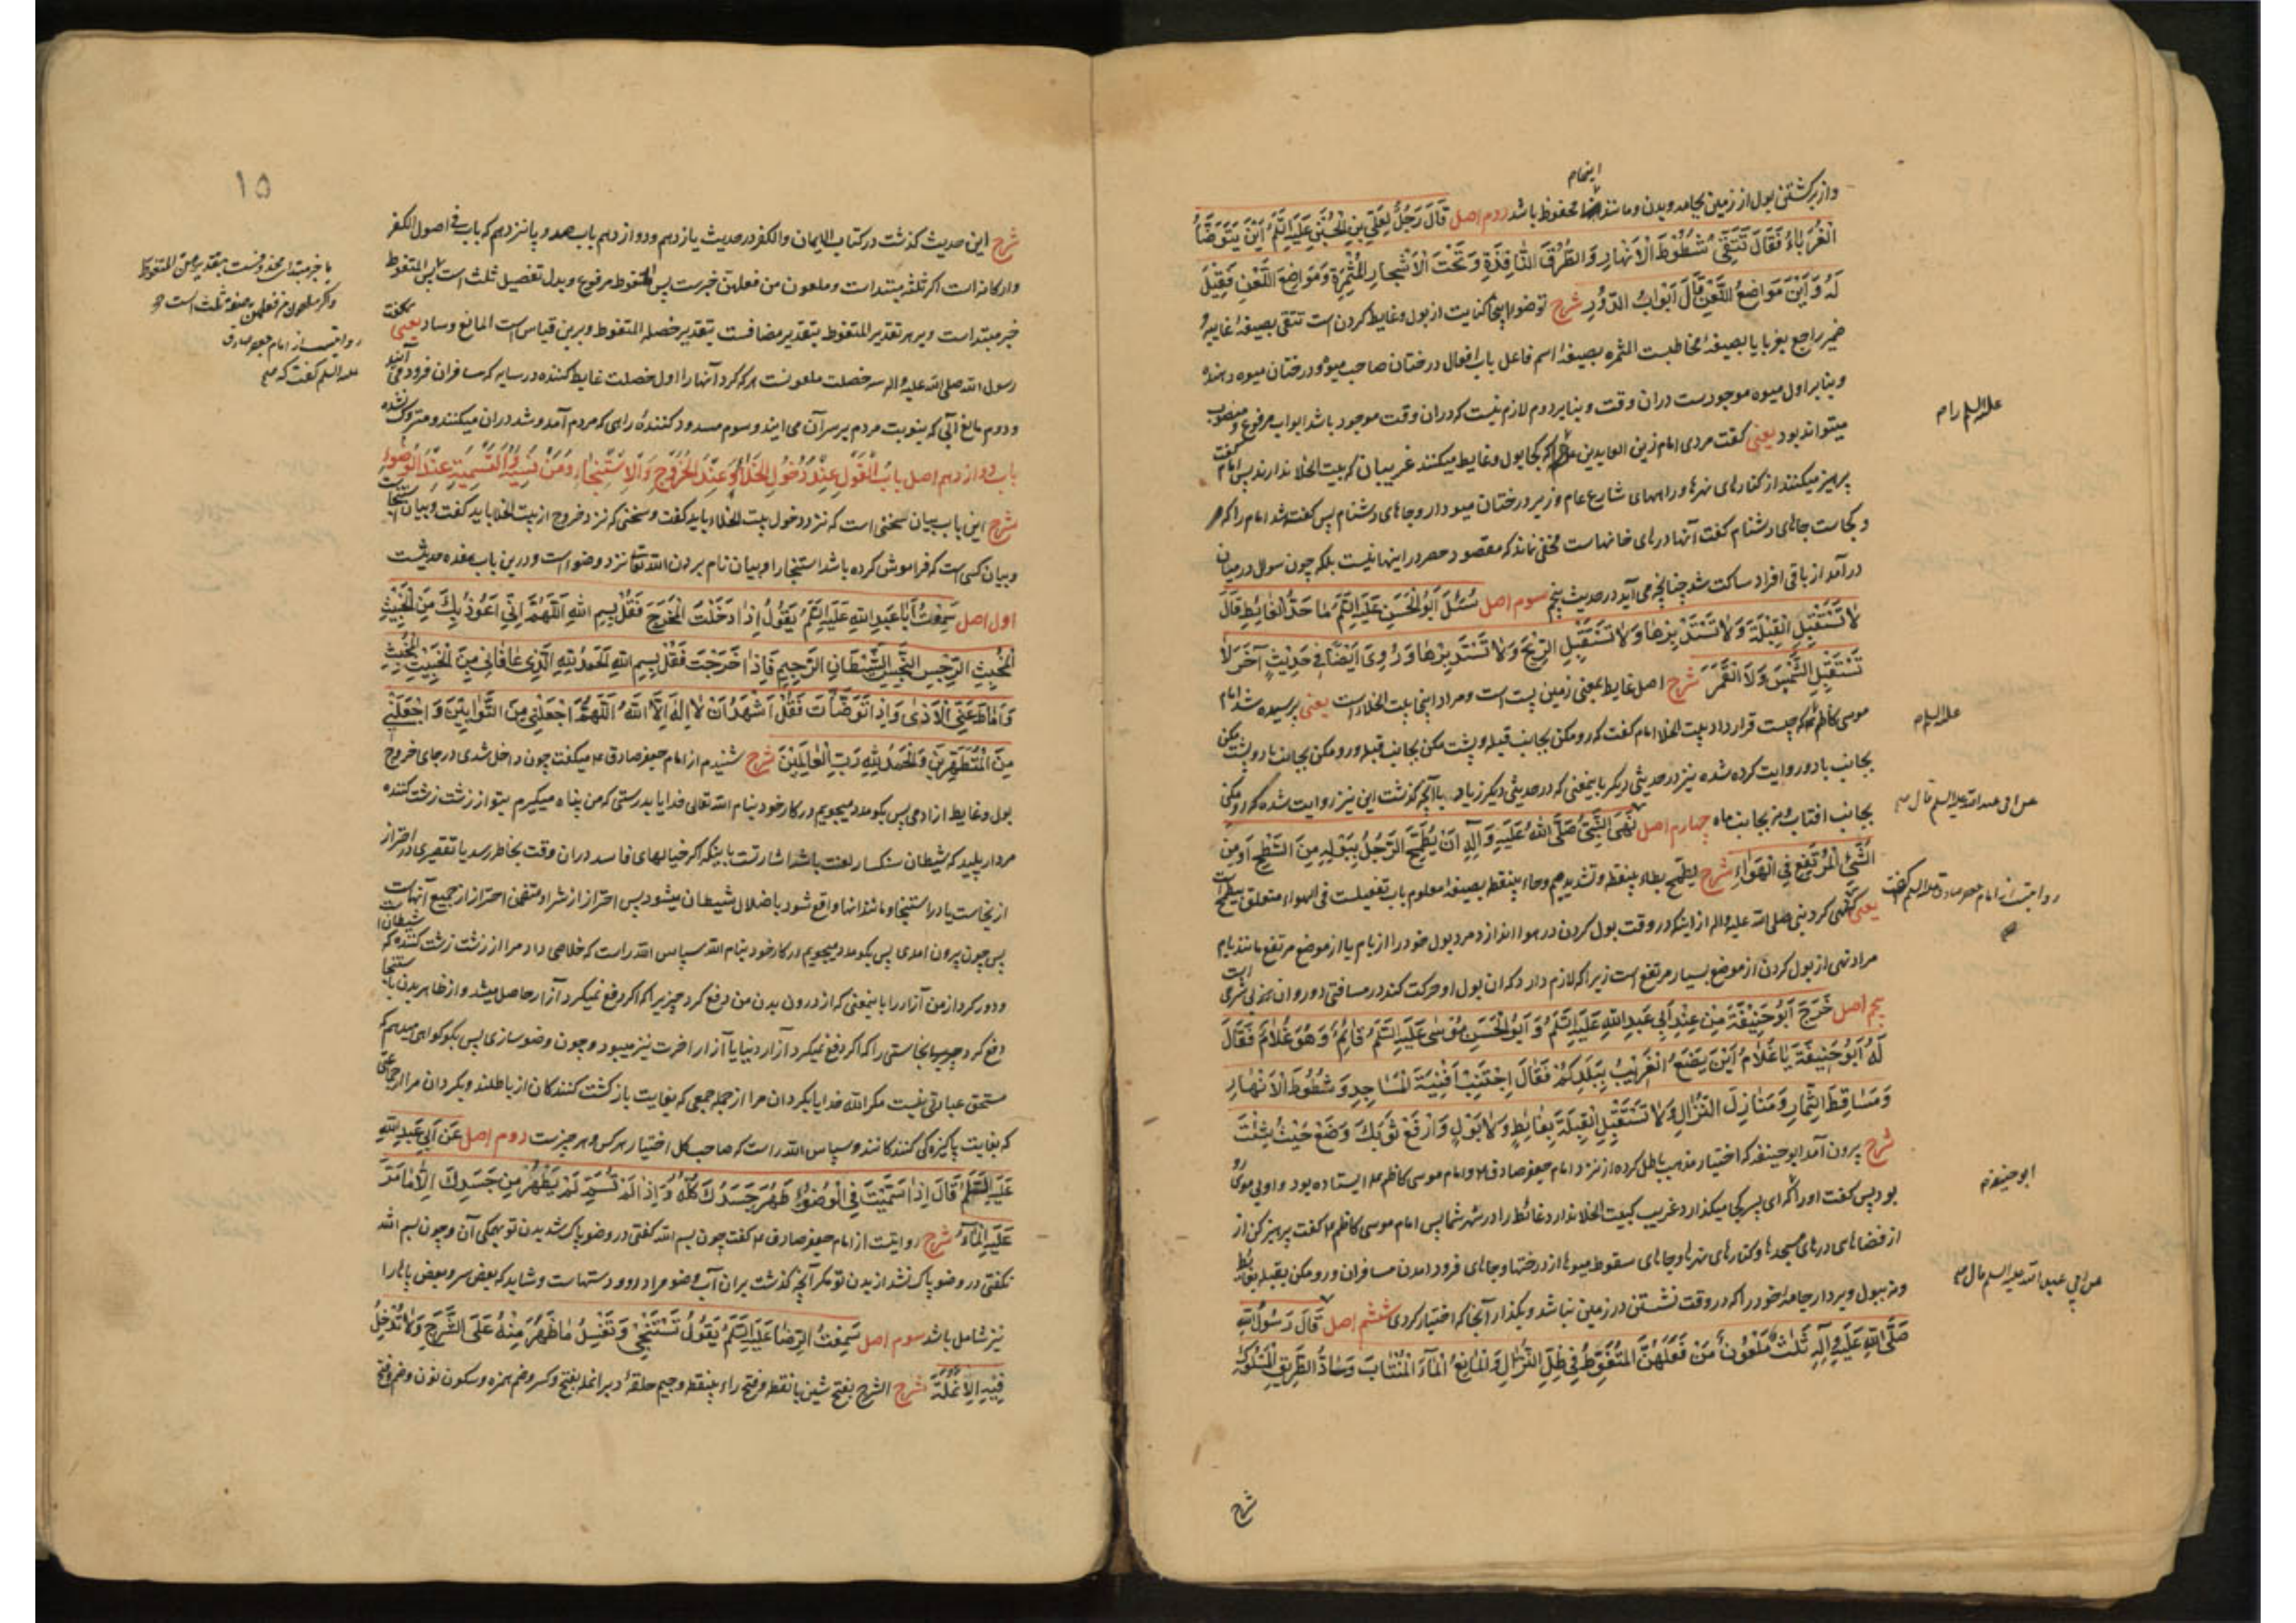 اینهام
واز برکشتن بول از زمین بجامه وبدن ومانند محفوظ باشد دوم اصل قَالَ رَجُلٌ لِعَلِيِّ بْنِ الْحُسَيْنِ عَلَيْهِ السَّلَمُ أَيْنَ يَتَوَضَّأُ
الْغُرَبَاءُ فَقَالَ تَتَّقِي شُطُوطَ الْأَنْهَارِ وَالطُّرُقَ النَّافِذَةِ وَتَحْتَ الْأَشْجَارِ الْمُثْمِرَةِ وَمَوَاضِعَ اللَّعْنِ فَقِيلَ
لَهُ وَأَيْنَ مَوَاضِعُ اللَّعْنِ قَالَ أَبْوَابُ الدُّوْرِ شرح توضو اینجا کنایت از بول وغایط کردن است تتقی بصیغهٔ غایبه و
ضمیر راجع بغربا یا بصیغهٔ مخاطبست المثمره بصیغهٔ اسم فاعل باب افعال درختان صاحب میوه و درختان میوه دهنده
وبنابر اول میوه موجودست دران وقت وبنابر دوم لازم نیست که دران وقت موجود باشد ابواب مرفوع و منصوب
میتواند بود یعنی کفت مردی امام زین العابدین را که کجا بول وغایط میکنند غریبان که بیت الخلا ندارند پس امام کفت
علیه السلم رام
پرهیز میکنند از کنارهای نهرها وراههای شارع عام وزیر درختان میوه دار وجاهای دشنام پس کفته شد امام را که
وکجاست جاهای دشنام کفت آنها درهای خانهاست مخفی نماند که مقصود حصر در اینها نیست بلکه چون سوال در میان
درآمد از باقی افراد ساکت شد چنانچه می آید در حدیث پنجم سوم اصل سُئِلَ أَبُو الْحَسَنِ عَلَيْهِ السَّلَمُ مَا حَدُّ الْغَائِطِ قَالَ
لَا تَسْتَقْبِلِ الْقِبْلَةَ وَلَا تَسْتَدْبِرْهَا وَلَا تَسْتَقْبِلِ الرِّيحَ وَلَا تَسْتَدْبِرْهَا وَرُوِيَ أَيْضًا فِي حَدِيثٍ آخَرَ لَا
تَسْتَقْبِلِ الشَّمْسَ وَلَا الْقَمَرَ شرح اصل غایط بمعنی زمین پست است ومراد اینجا بیت الخلاء است یعنی پرسیده شد امام
موسی کاظم که چیست قرار داد بیت الخلا امام کفت که رو مکن بجانب قبله وپشت مکن بجانب قبله ورو مکن بجانب باد وپشت مکن
علیه السلم
بجانب باد وروایت کرده شده نیز در حدیثی دیکر باینمعنی که در حدیثی دیکر زیاده باآنچه کذشت این نیز روایت شده که رو مکن
بجانب افتاب ونه بجانب ماه چهارم اصل نَهَى النَّبِيُّ صَلَّى اللَّهُ عَلَيْهِ وَآلِهِ أَنْ يُطَمِّحَ الرَّجُلُ بِبَوْلِهِ مِنَ السَّطْحِ أَوْ مِنَ
عن ابی عبد الله علیه السلم قال صح
الشَّيْءِ الْمُرْتَفِعِ فِي الْهَوَاءِ شرح یطمح بطاء بینقطه وتشدید میم وحاء بینقطه بصیغهٔ معلوم باب تفعیلست فی الهواء متعلق بیطمح است
روایتست از امام جعفر صادق علیه السلم که کفت صح
یعنی نهی کرد نبی صلی الله علیه واله از اینکه در وقت بول کردن در هوا اندازد مرد بول خود را از بام یا از موضع مرتفع مانند بام
مراد نهی از بول کردن از موضع بسیار مرتفع است زیرا که لازم دارد که ان بول او حرکت کند در مسافتی دور وان
پنجم اصل خَرَجَ أَبُو حَنِيفَةَ مِنْ عِنْدِ أَبِي عَبْدِ اللَّهِ عَلَيْهِ السَّلَمُ وَأَبُو الْحَسَنِ مُوسَى عَلَيْهِ السَّلَمُ قَائِمٌ وَهُوَ غُلَامٌ فَقَالَ
لَهُ أَبُو حَنِيفَةَ يَا غُلَامُ أَيْنَ يَضَعُ الْغَرِيبُ بِبَلَدِكُمْ فَقَالَ اجْتَنِبْ أَفْنِيَةَ الْمَسَاجِدِ وَشُطُوطَ الْأَنْهَارِ
وَمَسَاقِطَ الثِّمَارِ وَمَنَازِلَ النُّزَّالِ وَلَا تَسْتَقْبِلِ الْقِبْلَةَ بِغَائِطٍ وَلَا بَوْلٍ وَارْفَعْ ثَوْبَكَ وَضَعْ حَيْثُ شِئْتَ
شرح بیرون آمد ابو حنیفه که اختیار مذهب باطل کرده از نزد امام جعفر صادق ع وامام موسی کاظم ع ایستاده بود واو بی موی رو
بود پس کفت او را که ای پسر کجا میکذارد غریب که بیت الخلا ندارد غائط را در شهر شما پس امام موسی کاظم ع کفت پرهیز کن از
ابو حنیفه
از فضاهای درهای مسجدها وکنارهای نهرها وجاهای سقوط میوها از درختها وجاهای فرود امدن مسافران ورو مکن بقبله بغائط
ونه ببول وبردار جامهٔ خود را که در وقت نشستن در زمین نباشد وبکذار آنجا که اختیار کردی ششم اصل قَالَ رَسُولُ اللَّهِ
عن ابی عبد الله علیه السلم قال صح
صَلَّى اللَّهُ عَلَيْهِ وَآلِهِ ثَلَاثٌ مَلْعُونٌ مَنْ فَعَلَهُنَّ الْمُتَغَوِّطُ فِي ظِلِّ النُّزَّالِ وَالْمَانِعُ الْمَاءَ الْمُنْتَابَ وَسَادُّ الطَّرِيقِ الْمَسْلُوكِ
شرح
۱۵
شرح این حدیث کذشت در کتاب الایمان والکفر در حدیث یازدهم ودوازدهم باب صد و پانزدهم که باب فی اصول الکفر
وارکانه است اکر ثلثه مبتداست وملعون من فعلهن خبرست پس المتغوط مرفوع وبدل تفصیل ثلث است پس المتغوط
خبر مبتداست وبر هر تقدیر المتغوط بتقدیر مضافست بتقدیر خصلة المتغوط وبرین قیاس است المانع وساد یعنی کفت
یا خبر مبتدای محذوفست بتقدیر هن المتغوط
واکر ملعون من فعلهن صفة ثلث است
روایتست از امام جعفر صادق
علیه السلم کفت که صح
رسول الله صلی الله علیه واله سه خصلت ملعونست هر که کرد آنها را اول خصلت غایط کننده در سایه که مسافران فرود می آیند
ودوم مانع آبی که بنوبت مردم بر سر آن می ایند وسوم مسدود کنندهٔ راهی که مردم آمد وشد دران میکنند ومتروک نشده
باب دوازدهم اصل بَابُ الْقَوْلِ عِنْدَ دُخُولِ الْخَلَاءِ وَعِنْدَ الْخُرُوجِ وَالْاِسْتِنْجَاءِ وَمَنْ نَسِيَهُ وَالتَّسْمِيَةِ عِنْدَ الْوُضُوءِ
شرح این باب بیان سخنی است که نزد دخول بیت الخلاء باید کفت وسخنی که نزد خروج از بیت الخلا باید کفت وبیان استنجاست
وبیان کسی است که فراموش کرده باشد استنجا را وبیان نام بردن الله تعالی نزد وضوء است ودرین باب هفده حدیثست
اول اصل سَمِعْتُ أَبَا عَبْدِ اللَّهِ عَلَيْهِ السَّلَمُ يَقُولُ إِذَا دَخَلْتَ الْمَخْرَجَ فَقُلْ بِسْمِ اللَّهِ اللَّهُمَّ إِنِّي أَعُوذُ بِكَ مِنَ الْخَبِيثِ
الْمُخْبِثِ الرِّجْسِ النِّجْسِ الشَّيْطَانِ الرَّجِيمِ فَإِذَا خَرَجْتَ فَقُلْ بِسْمِ اللَّهِ الْحَمْدُ لِلَّهِ الَّذِي عَافَانِي مِنَ الْخَبِيثِ الْمُخْبِثِ
وَأَمَاطَ عَنِّي الْأَذَى وَإِذَا تَوَضَّأْتَ فَقُلْ أَشْهَدُ أَنْ لَا إِلَهَ إِلَّا اللَّهُ اللَّهُمَّ اجْعَلْنِي مِنَ التَّوَّابِينَ وَاجْعَلْنِي
مِنَ الْمُتَطَهِّرِينَ وَالْحَمْدُ لِلَّهِ رَبِّ الْعَالَمِينَ شرح شنیدم از امام جعفر صادق ع میکفت چون داخل شدی در جای خروج
بول وغایط از ادمی پس بکو مدد میجویم در کار خود بنام الله تعالی خدایا بدرستی که من پناه میکیرم بتو از زشت زشت کننده
مردار پلید که شیطان سنکسار لعنت باشد اشارتست باینکه اکر خیالهای فاسد دران وقت بخاطر رسد یا تقصیری در احتراز
از نجاست یا در استنجا ومانند انها واقع شود باضلال شیطان میشود پس احتراز از شر او متضمن احتراز از جمیع آنهاست
پس چون بیرون امدی پس بکو مدد میجویم در کار خود بنام الله سپاس الله راست که خلاصی داد مرا از زشت زشت کننده که شیطان است
ودور کرد از من آزار را باینمعنی که از درون بدن من دفع کرد چیزیرا که اکر دفع نمیکرد آزار حاصل میشد واز ظاهر بدن باستنجا
دفع کرد نجاستی را که اکر دفع نمیکرد آزار دنیا یا آزار اخرت نیز میبود وچون وضو سازی پس بکو کواهی میدهم که
مستحق عبادتی نیست مکر الله خدایا بکردان مرا از جمله جمعی که بغایت بازکشت کنندکان از باطلند وبکردان مرا از جماعتی
که بغایت پاکیزه کی کنندکانند وسپاس الله راست که صاحب کل اختیار هر کس وهر چیزست دوم اصل عَنْ أَبِي عَبْدِ اللَّهِ
عَلَيْهِ السَّلَمُ قَالَ إِذَا سَمَّيْتَ فِي الْوُضُوءِ طَهُرَ جَسَدُكَ كُلُّهُ وَإِذَا لَمْ تُسَمِّ لَمْ يَطْهُرْ مِنْ جَسَدِكَ إِلَّا مَا مَرَّ
عَلَيْهِ الْمَاءُ شرح روایتست از امام جعفر صادق ع کفت چون بسم الله کفتی در وضو پاک شد بدن تو همکی آن وچون بسم الله
نکفتی در وضو پاک نشد از بدن تو مکر آنچه کذشت بران آب وضو مراد رو ودستهاست وشاید که بعض سر وبعض پاها را
نیز شامل باشد سوم اصل سَمِعْتُ الرِّضَا عَلَيْهِ السَّلَمُ يَقُولُ تَسْتَنْجِي وَتَغْسِلُ مَا ظَهَرَ مِنْهُ عَلَى الشَّرَجِ وَلَا تُدْخِلُ
فِيهِ الْأَنْمُلَةَ شرح الشرج بفتح شین بانقطه وفتح راء بینقطه وجیم حلقهٔ دبر انمله بفتح وکسر وضم همزه وسکون نون وضم وفتح